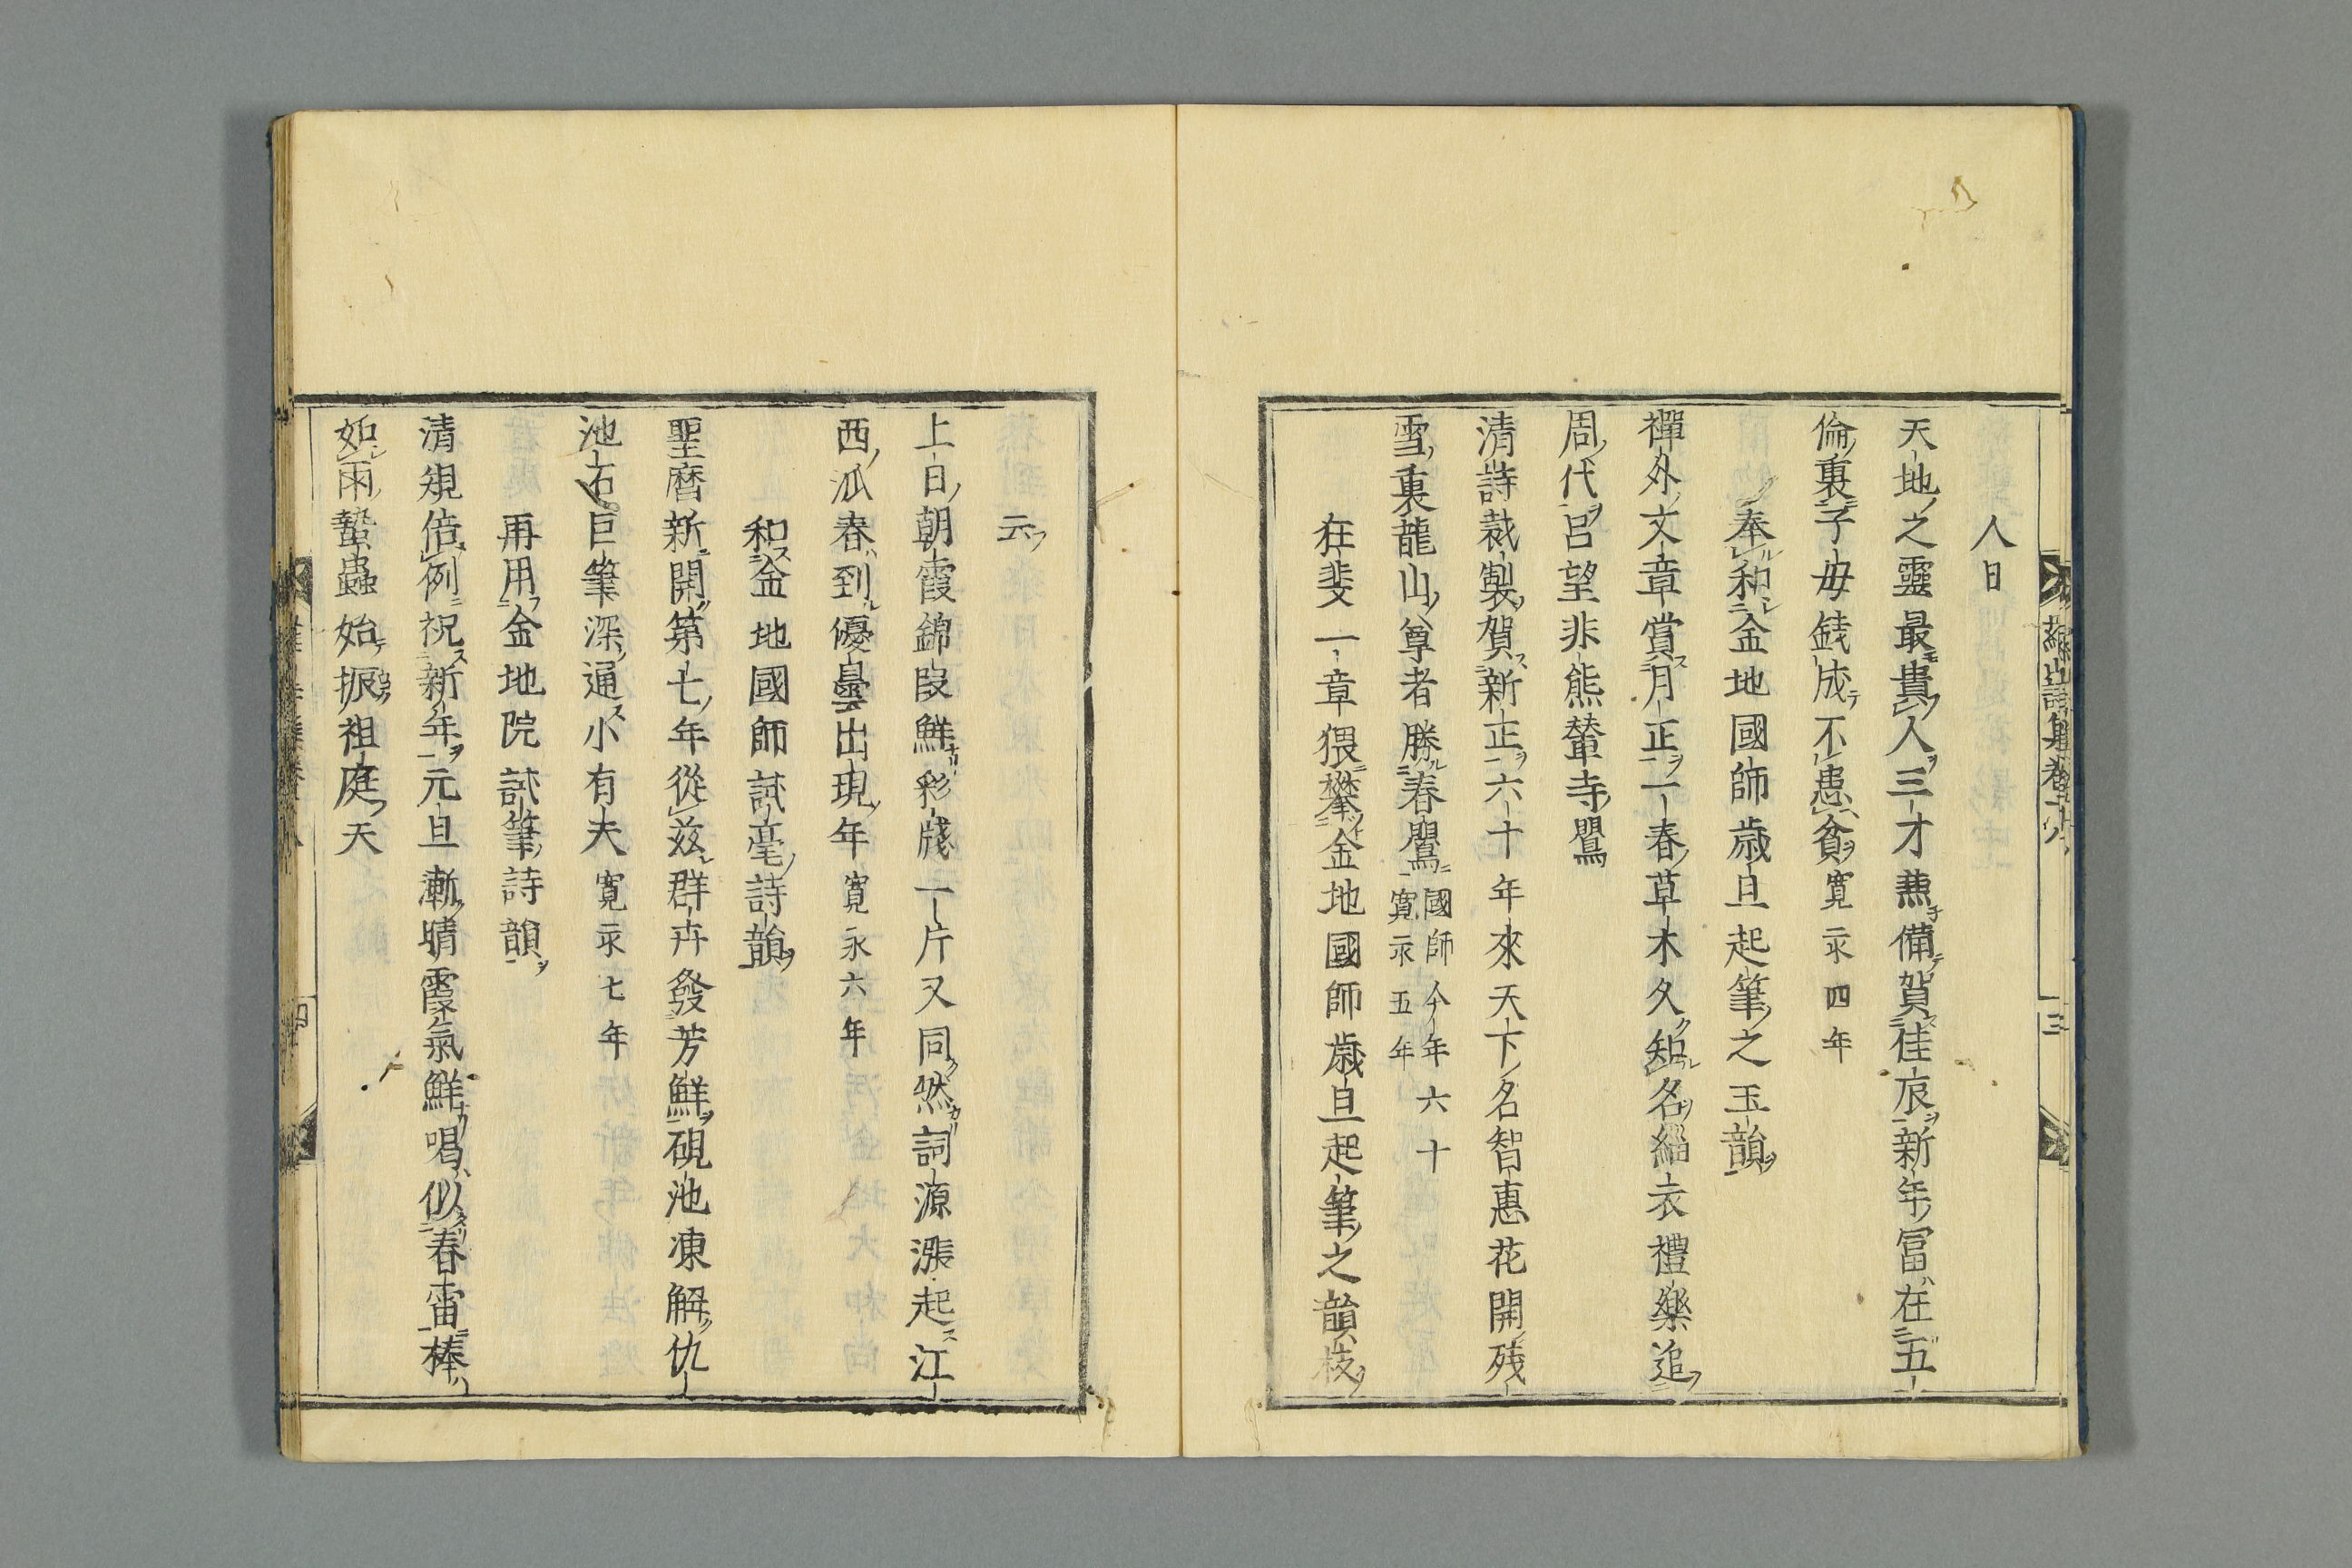 人日
天地之靈最貴人三才兼備賀佳辰新年富在五
倫裏子母錢成不患貧寛永四年
奉和金地國師歳旦起筆之玉韻
禪外文章賞月正一春草木久知名緇衣禮樂追
周代呂望非熊輦寺鸎
清詩裁製賀新正六十年來天下名智惠花開殘
雪裏龍山尊者勝春鸎國師今年六十
寛永五年
狂斐一章猥攀金地國師歳旦起筆之韻枝
云
上日朝霞錦段鮮彩牋一片又同然詞源漲起江
西瓜春到優曇出現年寛永六年
和金地國師試毫詩韻
聖暦新開第七年從茲群卉發芳鮮硯池凍解仇
池石巨筆深通小有天寛永七年
再用金地院試筆詩韻
清規倍例祝新年元旦漸晴霞氣鮮喝似春雷棒
如雨蟄蟲始振祖庭天
三
四